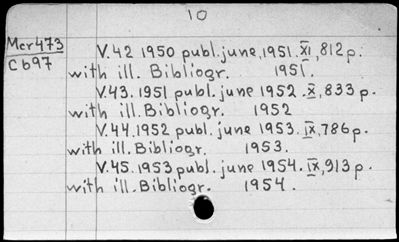 10
Mer473
Cb97
V.42 1950 publ.june,1951.XI,812p.
with ill. Bibliogr. 1951.
V.43.1951 publ.june 1952.X,833 p.
with ill. Bibliogr. 1952
V.44.1952 publ.june 1953.IX,786p.
with ill. Bibliogr. 1953.
V.45.1953 publ.june 1954.IX,913p.
with ill. Bibliogr. 1954.